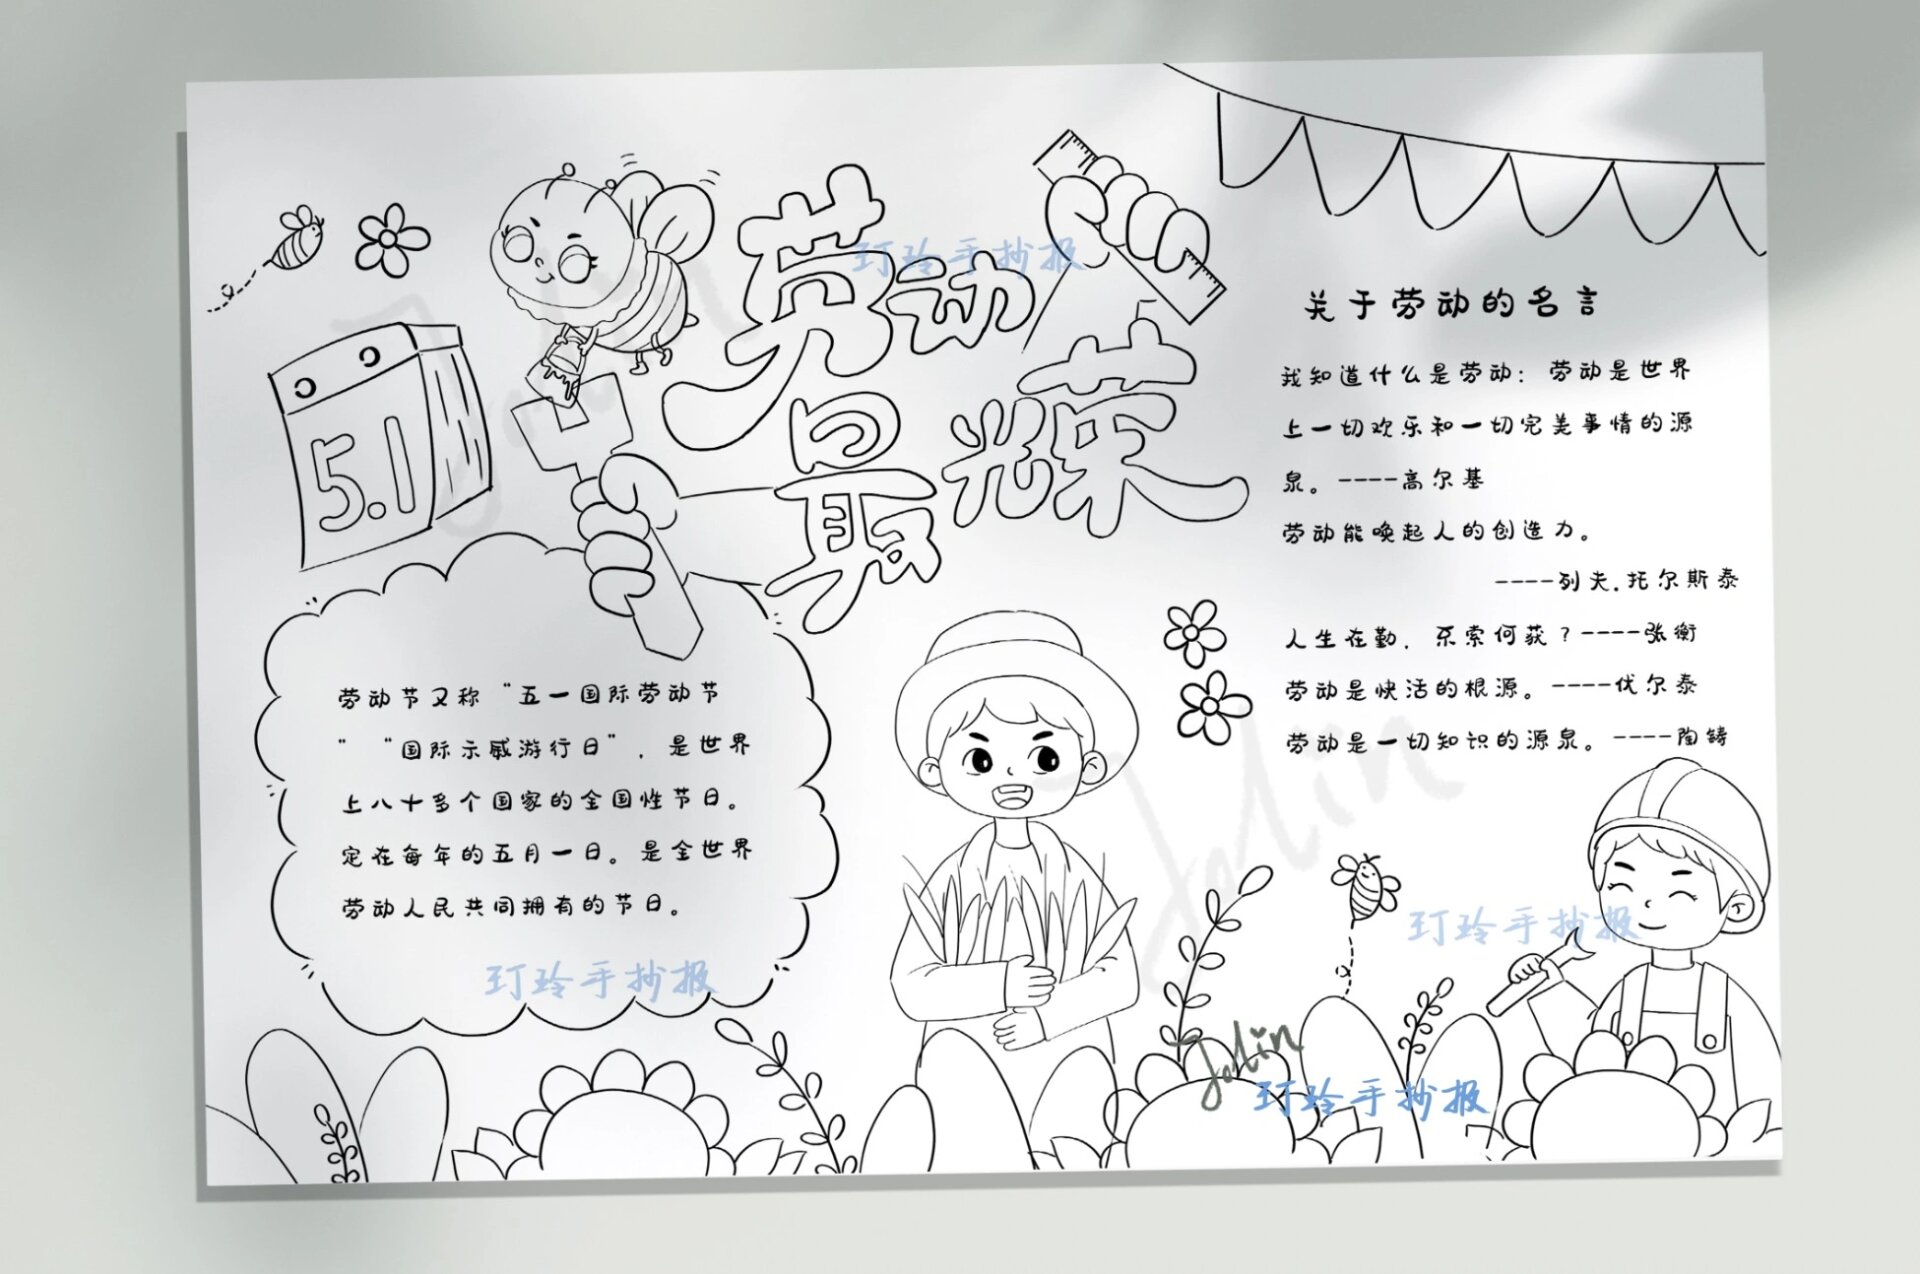 劳动最光荣
5.1
劳动节又称“五一国际劳动节
” “国际示威游行日”，是世界
上八十多个国家的全国性节日。
定在每年的五月一日。是全世界
劳动人民共同拥有的节日。
关于劳动的名言
我知道什么是劳动：劳动是世界
上一切欢乐和一切完美事情的源
泉。----高尔基
劳动能唤起人的创造力。
----列夫.托尔斯泰
人生在勤，不索何获？----张衡
劳动是快活的根源。----优尔泰
劳动是一切知识的源泉。----陶铸
玎玲手抄报
玎玲手抄报
玎玲手抄报
Jolin
玎玲手抄报
Jolin
Jolin